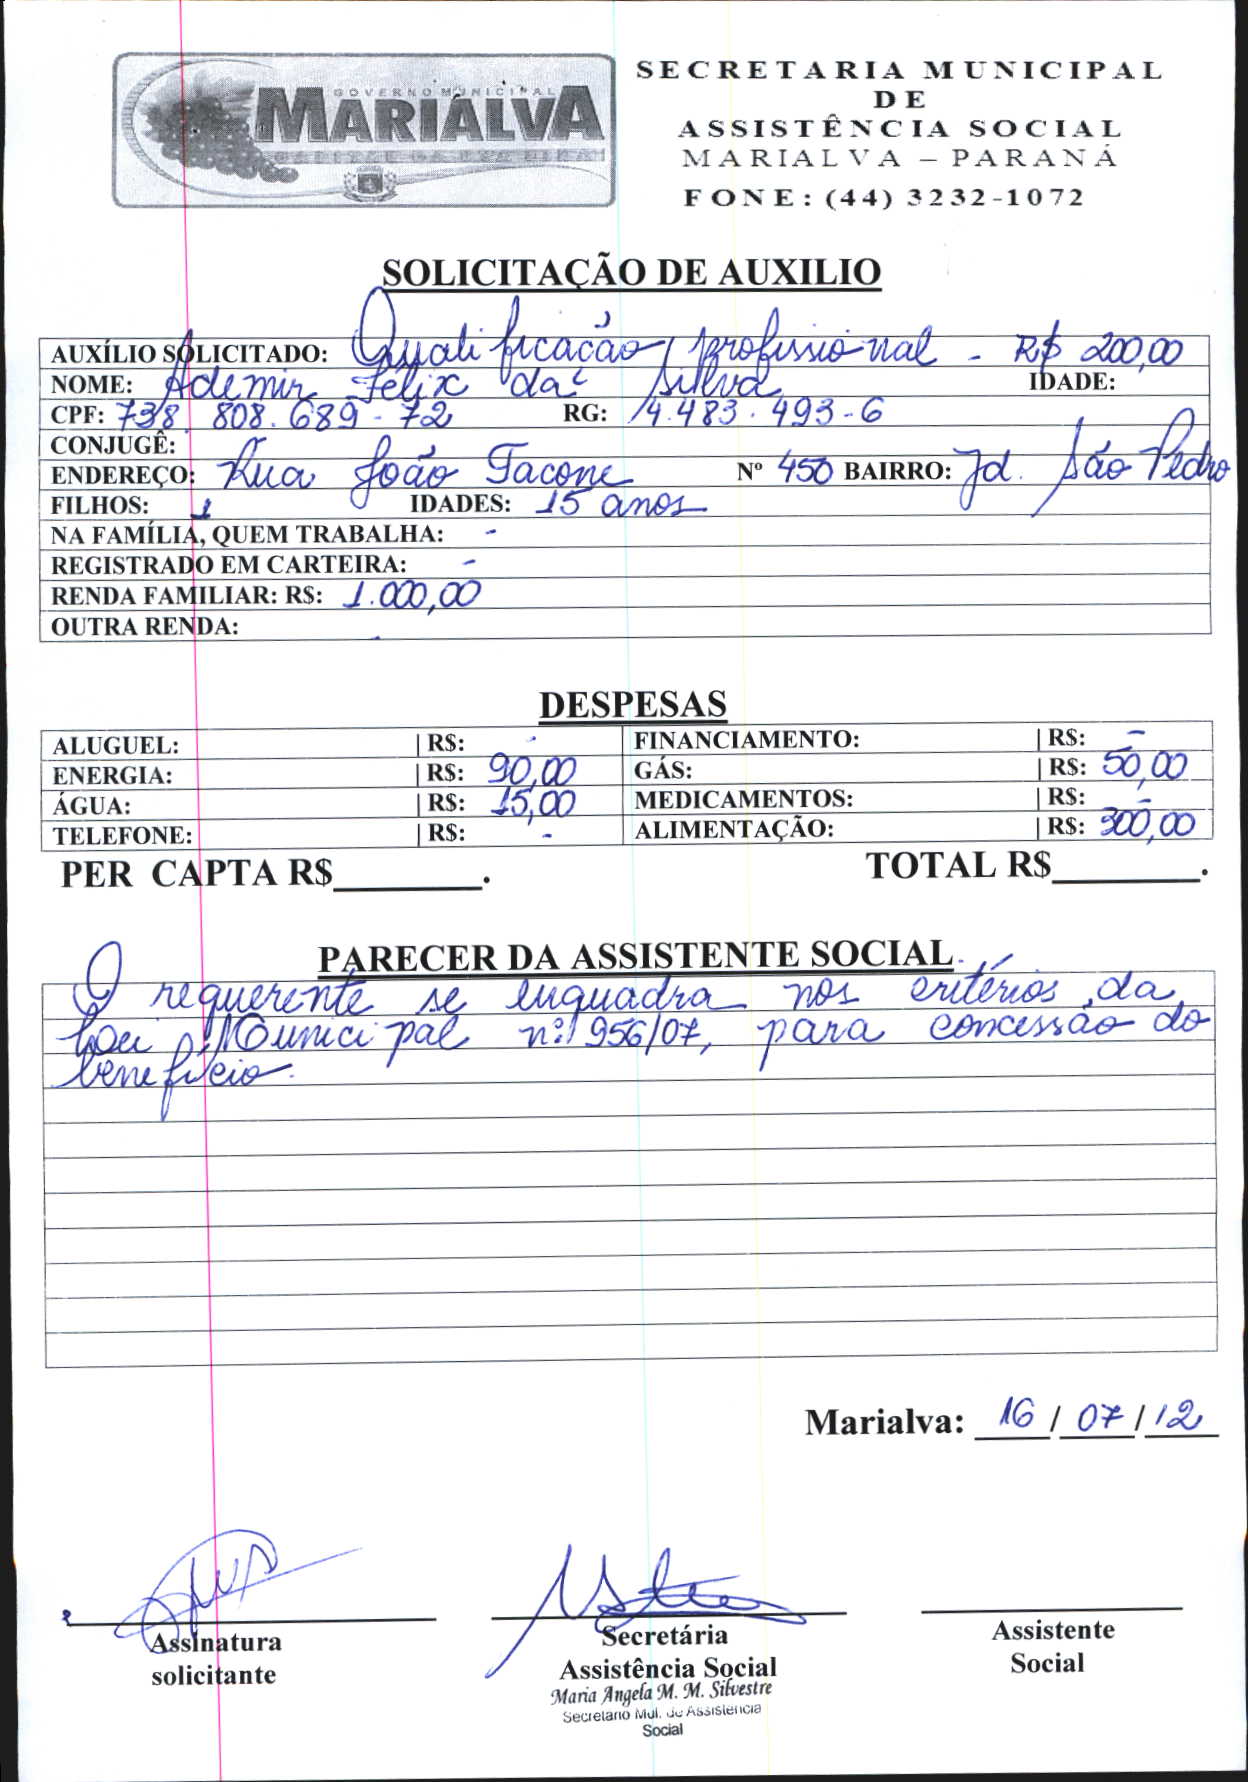 GOVERNO MUNICIPAL
MARIALVA
SECRETARIA MUNICIPAL
DE
ASSISTÊNCIA SOCIAL
MARIALVA – PARANÁ
FONE: (44) 3232-1072
SOLICITAÇÃO DE AUXILIO
AUXÍLIO SOLICITADO: Qualificação profissional - R$ 200,00
NOME: Ademir Felix da Silva IDADE:
CPF: 738.808.689-72 RG: 4.483.493-6
CONJUGÊ:
ENDEREÇO: Rua João Tacone Nº 450 BAIRRO: Jd. São Pedro
FILHOS: 1 IDADES: 15 anos
NA FAMÍLIA, QUEM TRABALHA: -
REGISTRADO EM CARTEIRA: -
RENDA FAMILIAR: R$: 1.000,00
OUTRA RENDA:
DESPESAS
ALUGUEL: | R$: - FINANCIAMENTO: | R$: -
ENERGIA: | R$: 90,00 GÁS: | R$: 50,00
ÁGUA: | R$: 15,00 MEDICAMENTOS: | R$: -
TELEFONE: | R$: - ALIMENTAÇÃO: | R$: 300,00
PER CAPTA R$________. TOTAL R$________.
PARECER DA ASSISTENTE SOCIAL
O requerente se enquadra nos critérios da
Lei Municipal nº 956/07, para concessão do
benefício.
Marialva: 16 / 07 / 12
Assinatura
solicitante
Secretária
Assistência Social
Maria Angela M. M. Silvestre
Secretario Mul. de Assistencia
Social
Assistente
Social